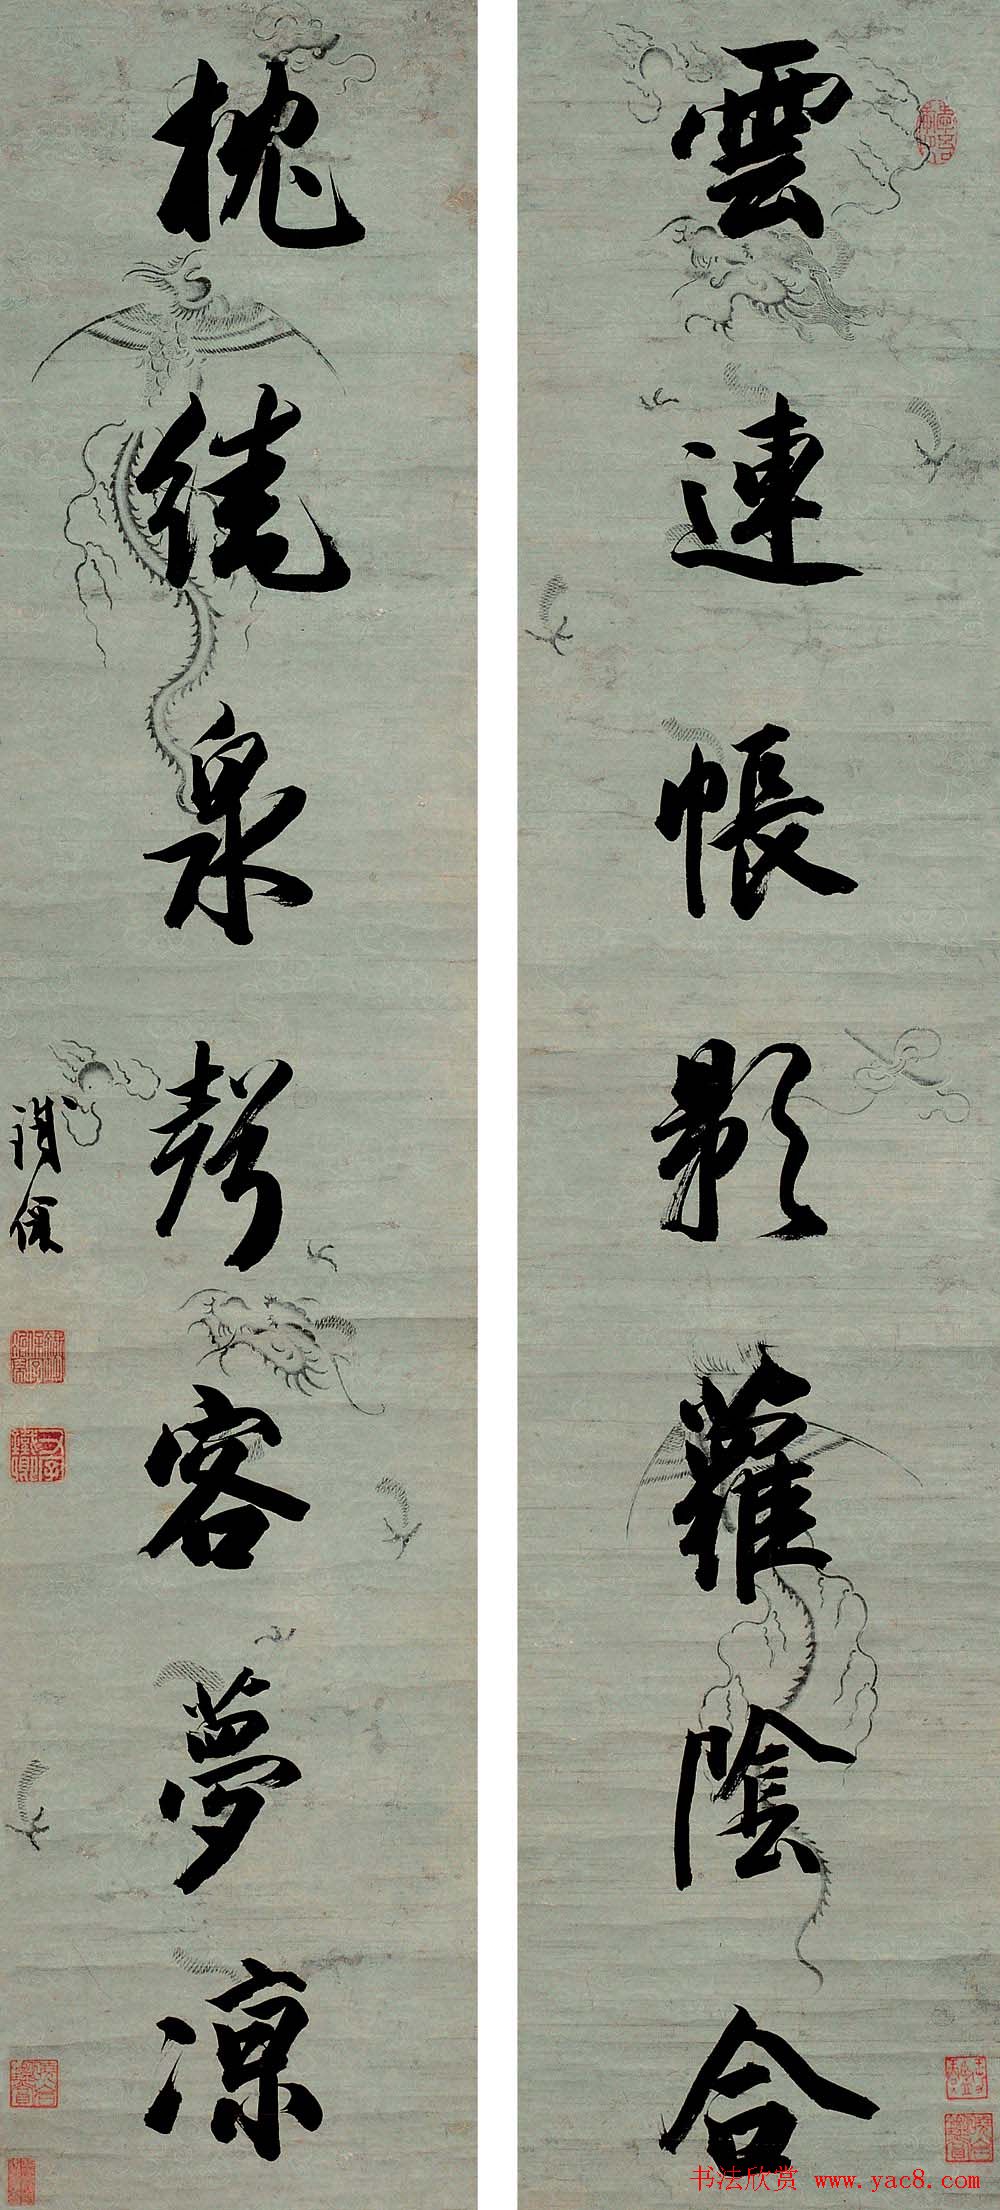 雲連帳影蘿陰合
枕繞泉聲客夢涼
鐵保
书法欣赏 www.yac8.com